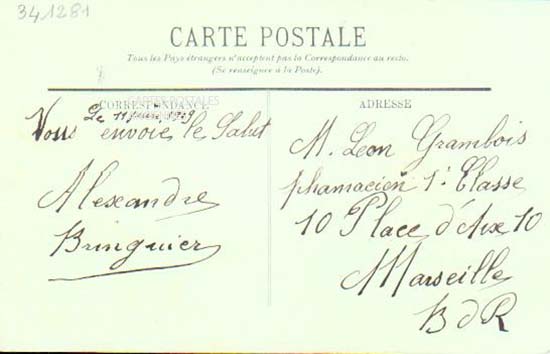 341281
CARTE POSTALE
Tous les Pays étrangers n'acceptent pas la Correspondance au recto.
(Se renseigner à la Poste).
CORRESPONDANCE
CARTES POSTALES
Le 11 juin 1909
Vous envoie le Salut
Alexandre
Bringuier
ADRESSE
M. Leon Grambois
phamacien 1e Classe
10 Place d'Aix 10
Marseille
B d R